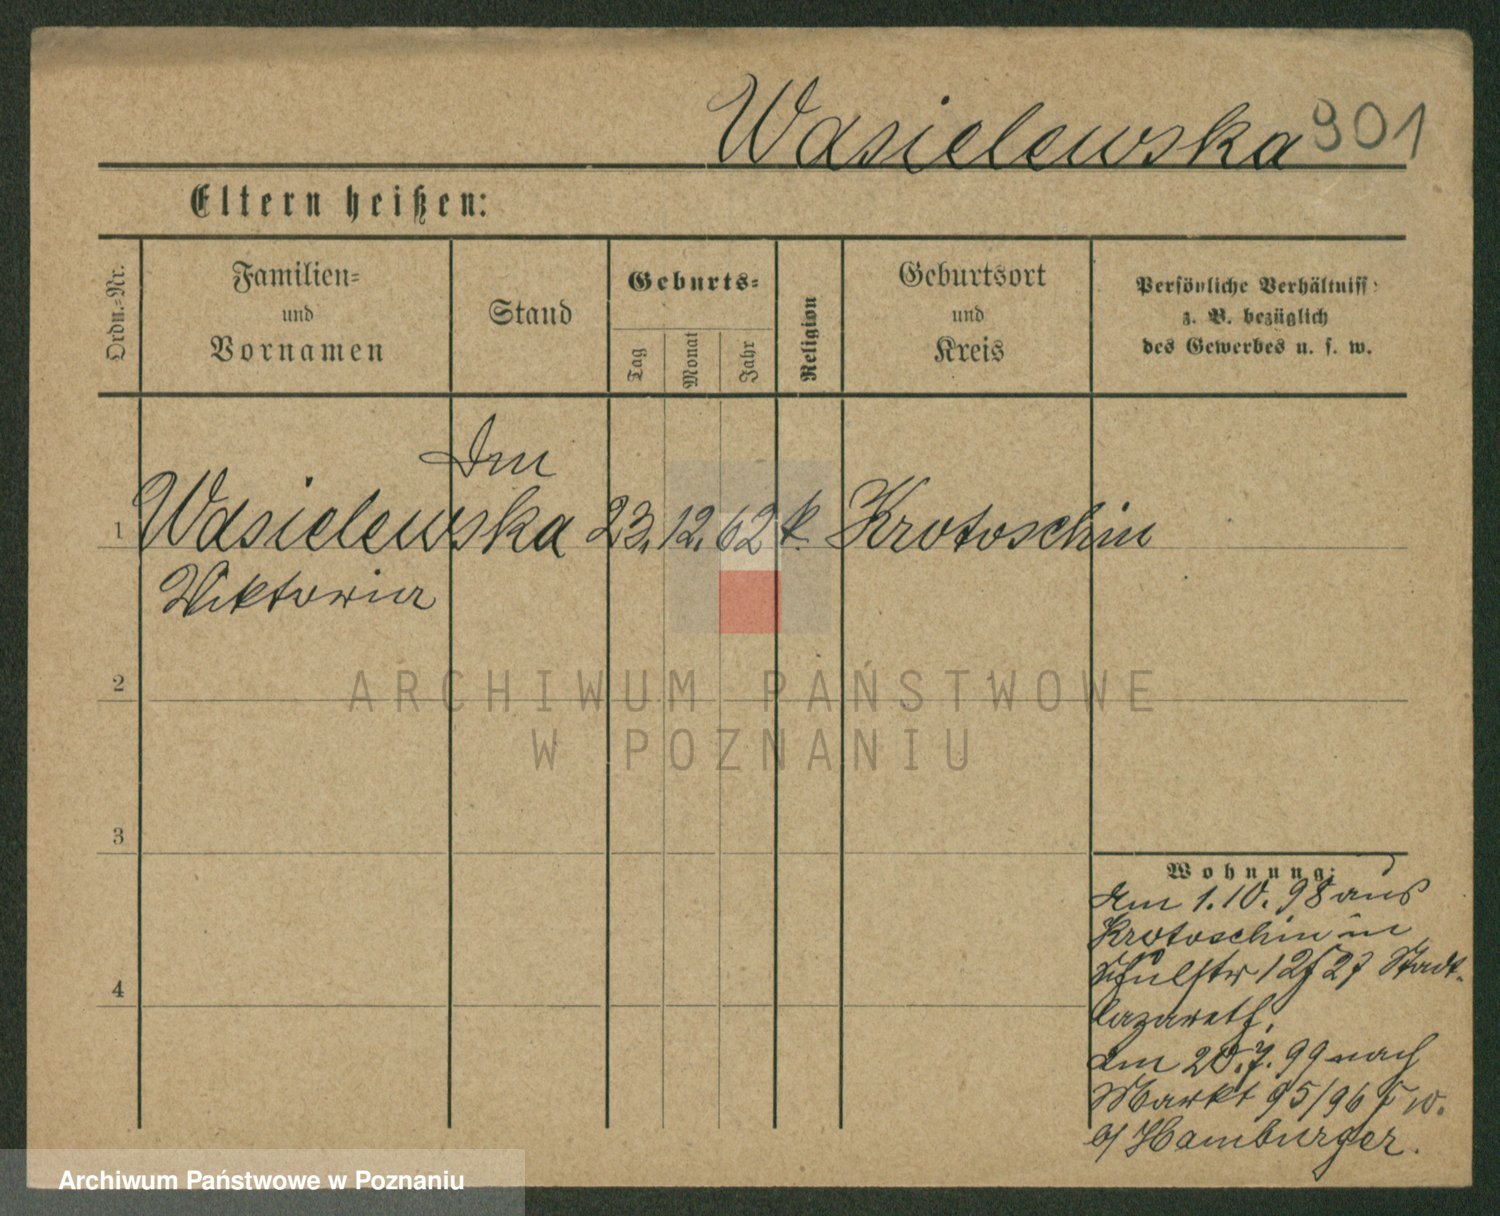 Wasielewska 901
Eltern heißen:
Ordn.-Nr.
Familien-
und
Vornamen
Stand
Geburts-
Tag
Monat
Jahr
Religion
Geburtsort
und
Kreis
Persönliche Verhältniss
z. B. bezüglich
des Gewerbes u. s. w.
1 Wasielewska 23. 12. 62 k. Krotoschin
Viktoria
2
3
4
Wohnung:
Am 1.10.98 aus
Krotoschin in
Schulstr 12 Stadt-
lazareth.
Am 20.7.99 nach
Markt 95/96
b/ Hamburger.
ARCHIWUM PAŃSTWOWE
W POZNANIU
Archiwum Państwowe w Poznaniu